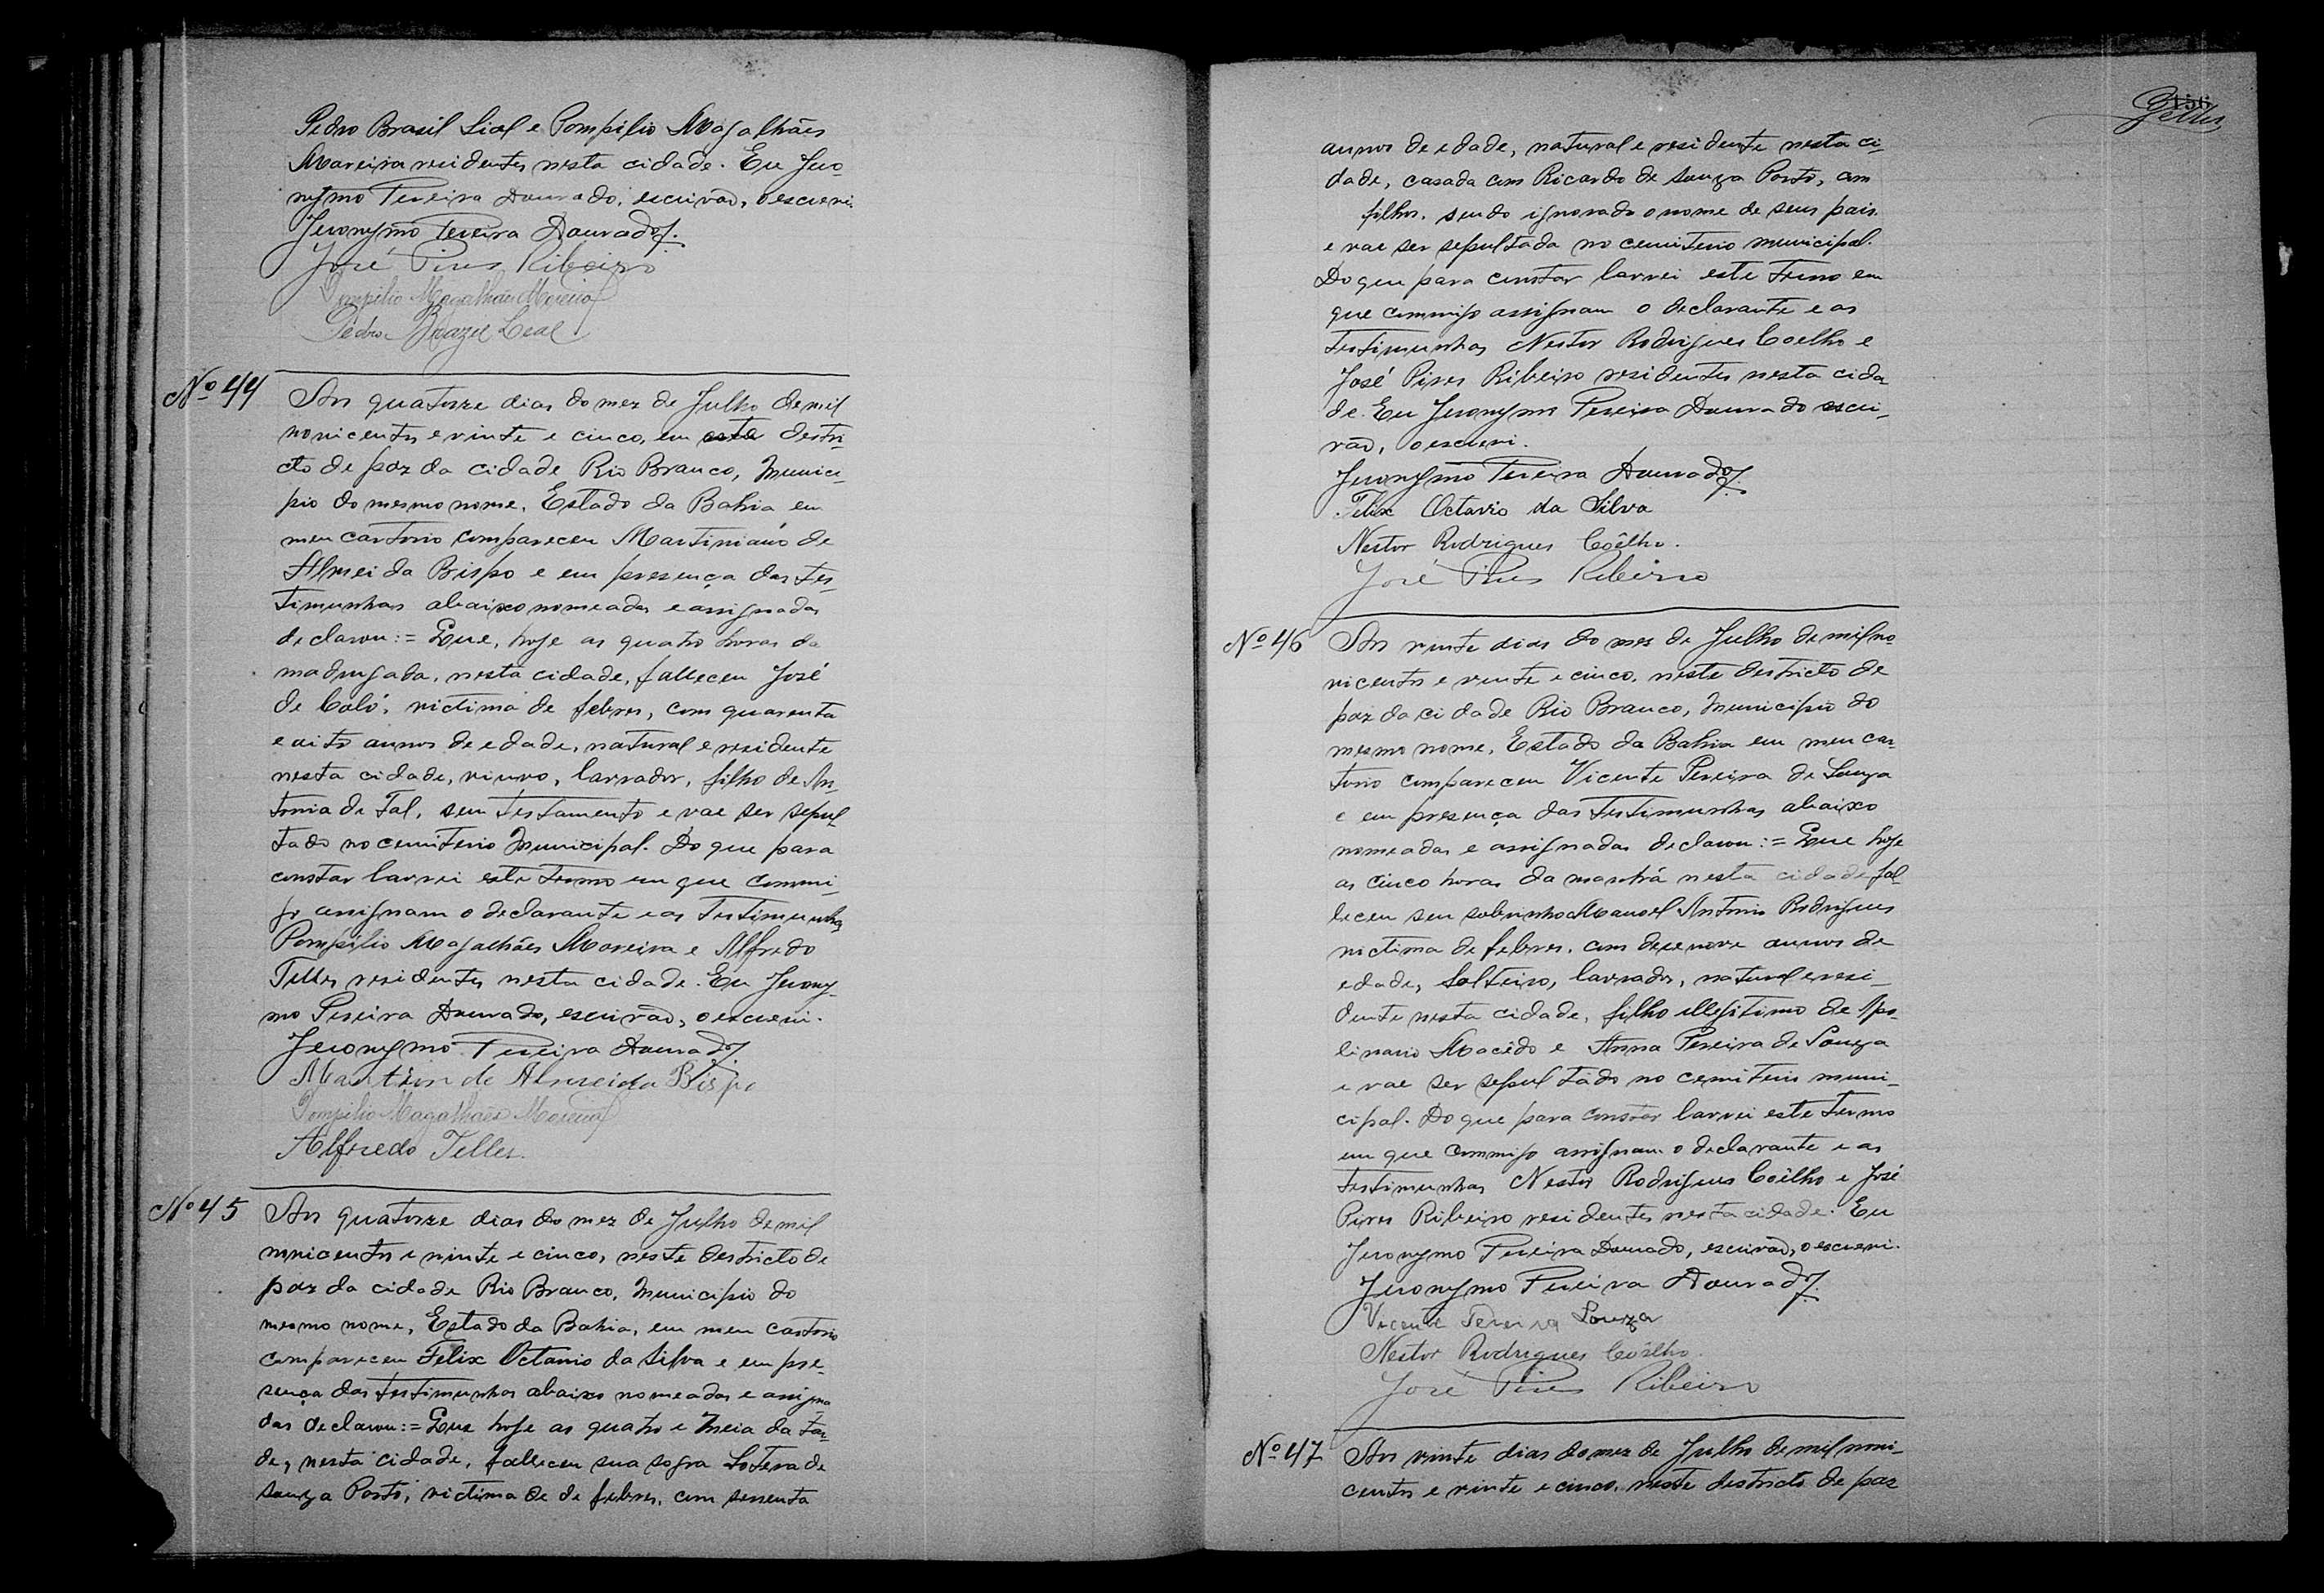 Pedro Brasil Lial e Pompilio Magalhães
Moreira residentes nesta cidade. Eu Jero-
nymo Pereira Dourado, escrivão, o escrevi.
Jeronymo Pereira Dourado.
José Pires Ribeiro
Pompilio Magalhães Moreira
Pedro Brazil Leal
Nº 44
Aos quatorze dias do mez de Julho de mil
novicentos e vinte e cinco, em este destri-
cto de paz da cidade Rio Branco, Munici-
pio do mesmo nome, Estado da Bahia em
meu cartorio compareceu Martiniano de
Almeida Bispo e em presença das tes-
timunhas abaixo nomeadas e assignadas
declarou:= Que, hoje as quatro horas da
madrugada, nesta cidade, falleceu José
de Caló, victima de febres, com quarenta
e oito annos de edade, natural e residente
nesta cidade, viuvo, lavrador, filho de An-
tonia de Tal, sem testamento e vae ser sepul-
tado no cemiterio Municipal. Do que para
constar lavrei este termo em que commi-
go assignam o declarante e as testimunhas
Pompilio Magalhães Moreira e Alfredo
Telles residentes nesta cidade. Eu Jerony-
mo Pereira Dourado, escrivão, o escrevi.
Jeronymo Pereira Dourado.
Martin de Almeida Bispo
Pompilio Magalhães Moreira
Alfredo Telles.
Nº 45
Aos quatorze dias do mez de Julho de mil
novicentos e vinte e cinco, neste destricto de
paz da cidade Rio Branco, Municipio do
mesmo nome, Estado da Bahia, em meu cartorio
compareceu Felix Octavio da Silva e em pre-
sença das testimunhas abaixo nomeadas e assigna
das declarou:= Que hoje as quatro e meia da tar-
de, nesta cidade, falleceu sua sogra Lotera de
Souza Porto, victima de de febres, com sessenta
156
Telles
annos de edade, natural e residente nesta ci-
dade, casada com Ricardo de Souza Porto, com
filhos, sendo ignorado o nome de seus pais
e vae ser sepultada no cemiterio municipal.
Do que para constar lavrei este termo em
que commigo assignam o declarante e as
testimunhas Nestor Rodrigues Coelho e
José Pires Ribeiro residentes nesta cida
de. Eu Jeronymo Pereira Dourado escri-
vão, o escrevi.
Jeronymo Pereira Dourado.
Felix Octavio da Silva
Nestor Rodrigues Coêlho.
José Pires Ribeiro
Nº 46
Aos vinte dias do mez de Julho de mil no-
vicentos e vinte e cinco, neste destricto de
paz da cidade Rio Branco, Municipio do
mesmo nome, Estado da Bahia em meu car-
torio compareceu Vicente Pereira de Souza
e em presença das testimunhas abaixo
nomeadas e assignadas declarou:= Que hoje
as cinco horas da manhã nesta cidade fal-
leceu seu sobrinho Manoel Antonio Rodrigues
victima de febres, com desenove annos de
edade, solteiro, lavrador, natural e resi-
dente nesta cidade, filho illegitimo de Apo-
linario Macêdo e Anna Pereira de Souza
e vae ser sepultado no cemiterio muni-
cipal. Do que para constar lavrei este termo
em que commigo assignam o declarante e as
testimunhas Nestor Rodrigues Coêlho e José
Pires Ribeiro residentes nesta cidade. Eu
Jeronymo Pereira Dourado, escrivão, o escrevi.
Jeronymo Pereira Dourado.
Vicente Pereira Souza
Nestor Rodrigues Coêlho.
José Pires Ribeiro
Nº 47
Aos vinte dias do mez de Julho de mil novi-
centos e vinte e cinco, neste destricto de paz